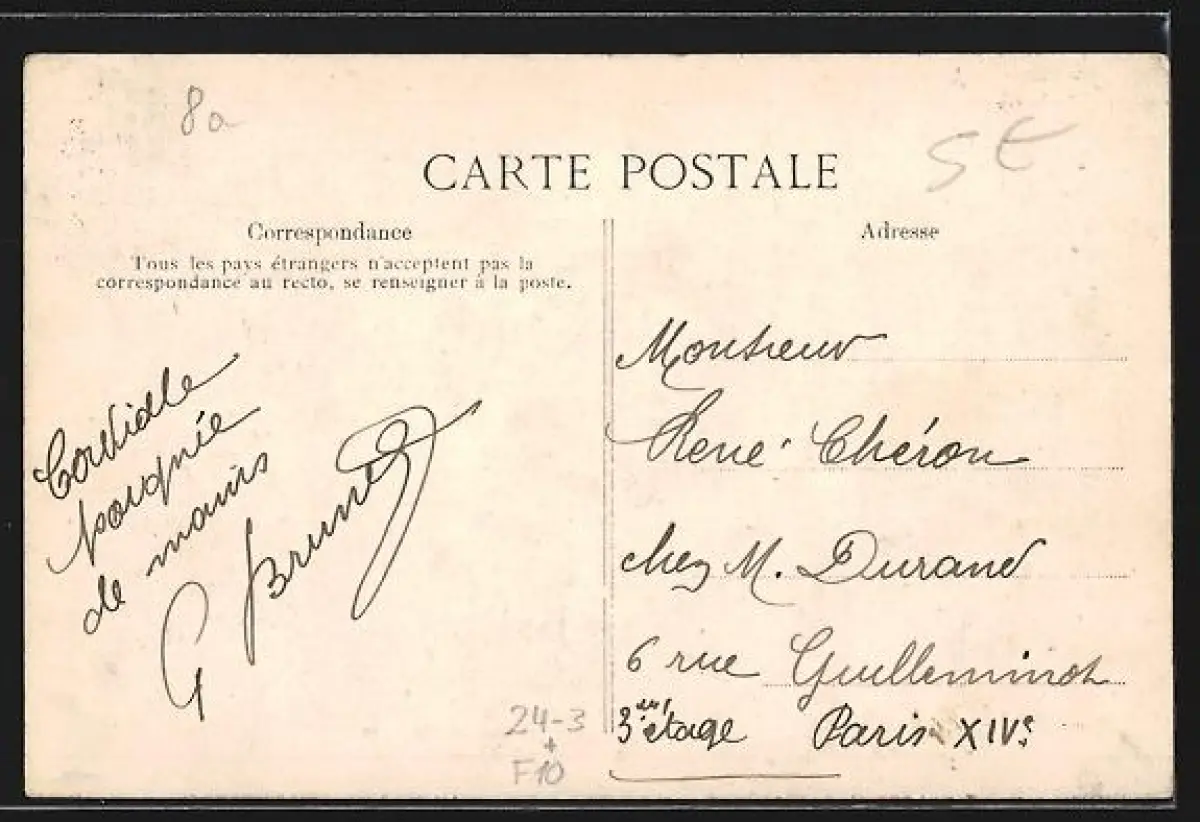 8a
St
CARTE POSTALE
Correspondance
Tous les pays étrangers n'acceptent pas la
correspondance au recto, se renseigner à la poste.
Cordialle
poignée
de mains
G Brunet
Adresse
Monsieur
René Chéron
chez M. Durand
6 rue Guilleminot
3eme étage Paris XIVe
24-3
+
F10